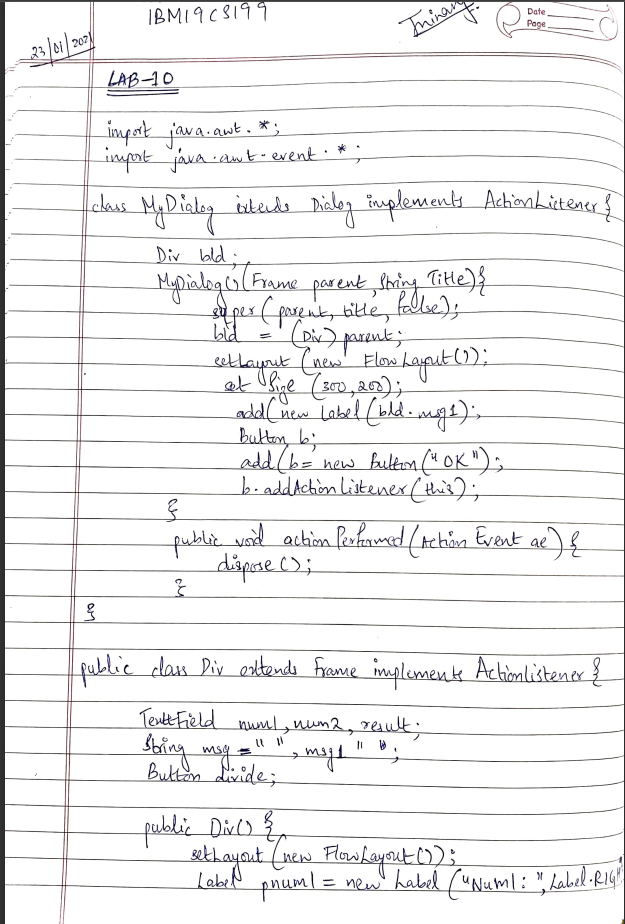 IBM19CS199
Date
Page
23/01/2021
LAB-10
import java.awt.*;
import java.awt.event.*;
class MyDialog extends Dialog implements ActionListener {
Div bld;
MyDialog()(Frame parent, String Title){
super(parent, title, false);
bld = (Div) parent;
setLayout (new FlowLayout());
set Size (300,200);
add(new Label (bld.msg1);
Button b;
add(b= new Button("OK");
b.addActionListener(this);
}
public void actionPerformed(Action Event ae) {
dispose();
}
}
public class Div extends Frame implements ActionListener {
TextField num1, num2, result;
String msg = " ", msg1 " ";
Button divide;
public Div() {
setLayout (new FlowLayout());
Label pnum1 = new Label ("Num1:", Label.RIGH